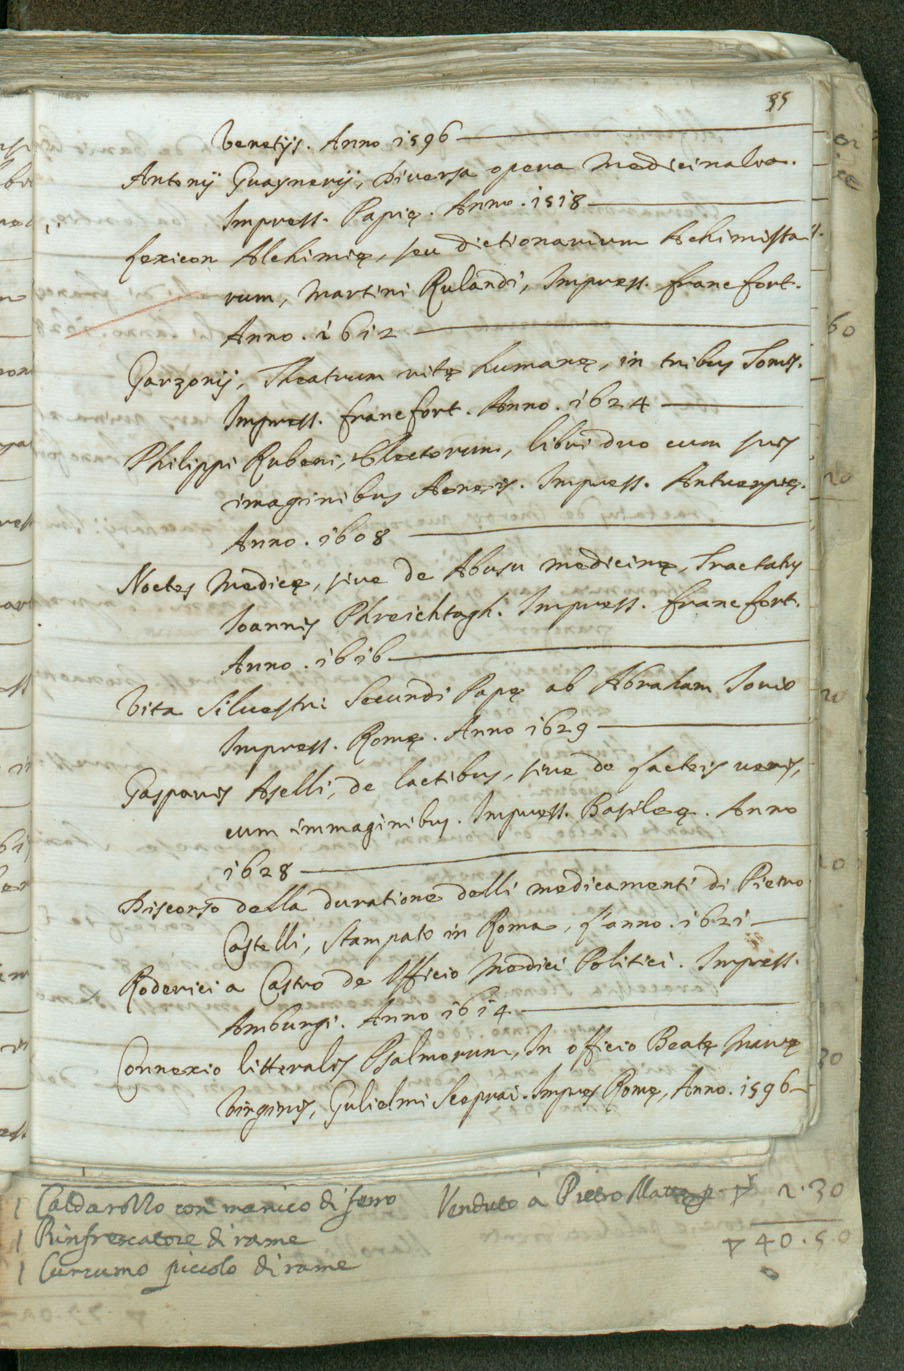 35
Venetijs. Anno 1596
Antonij Guaynerij, Diversa opera Medicinalia.
Impress. Papię. Anno. 1518
Lexicon Alchimię, seu dictionarium Achimista
rum, Martini Rulandi, Impress. francfort.
Anno. 1612
Garzonij, Theatrum vitę humanę, in tribus Tomis.
Impress. francfort. Anno. 1624
Philippi Rubeni, Electorum, libri duo cum suis
imaginibus Aeneis. Impress. Antuerpię.
Anno. 1608
Noctes Medicę, sive de Abusu medicinę, Tractatus
Ioannis Phreichtagh. Impress. francfort.
Anno. 1616
Vita Silvestri Secundi Papę ab Abraham Iovio
Impress. Romę. Anno 1629
Gasparis Aselli, de lactibus, sive de lacteis venis,
cum immaginibus. Impress. Basileę. Anno
1628
Discorso della duratione delli medicamenti di Pietro
Castelli, stampato in Roma, l'anno. 1621
Roderici a Castro de Officio Medici Politici. Impress.
Amburgi. Anno 1614
Connexio litteralis Psalmorum, In officio Beatę Marię
Virginis, Gulielmi Scoprai. Impres Romę, Anno. 1596
60
20
20
30
1 Caldarozzo con manico di ferro Venduto à Pietro 2.30
1 Rinfrescatore di rame 40.50
1 Curzumo piccolo di rame